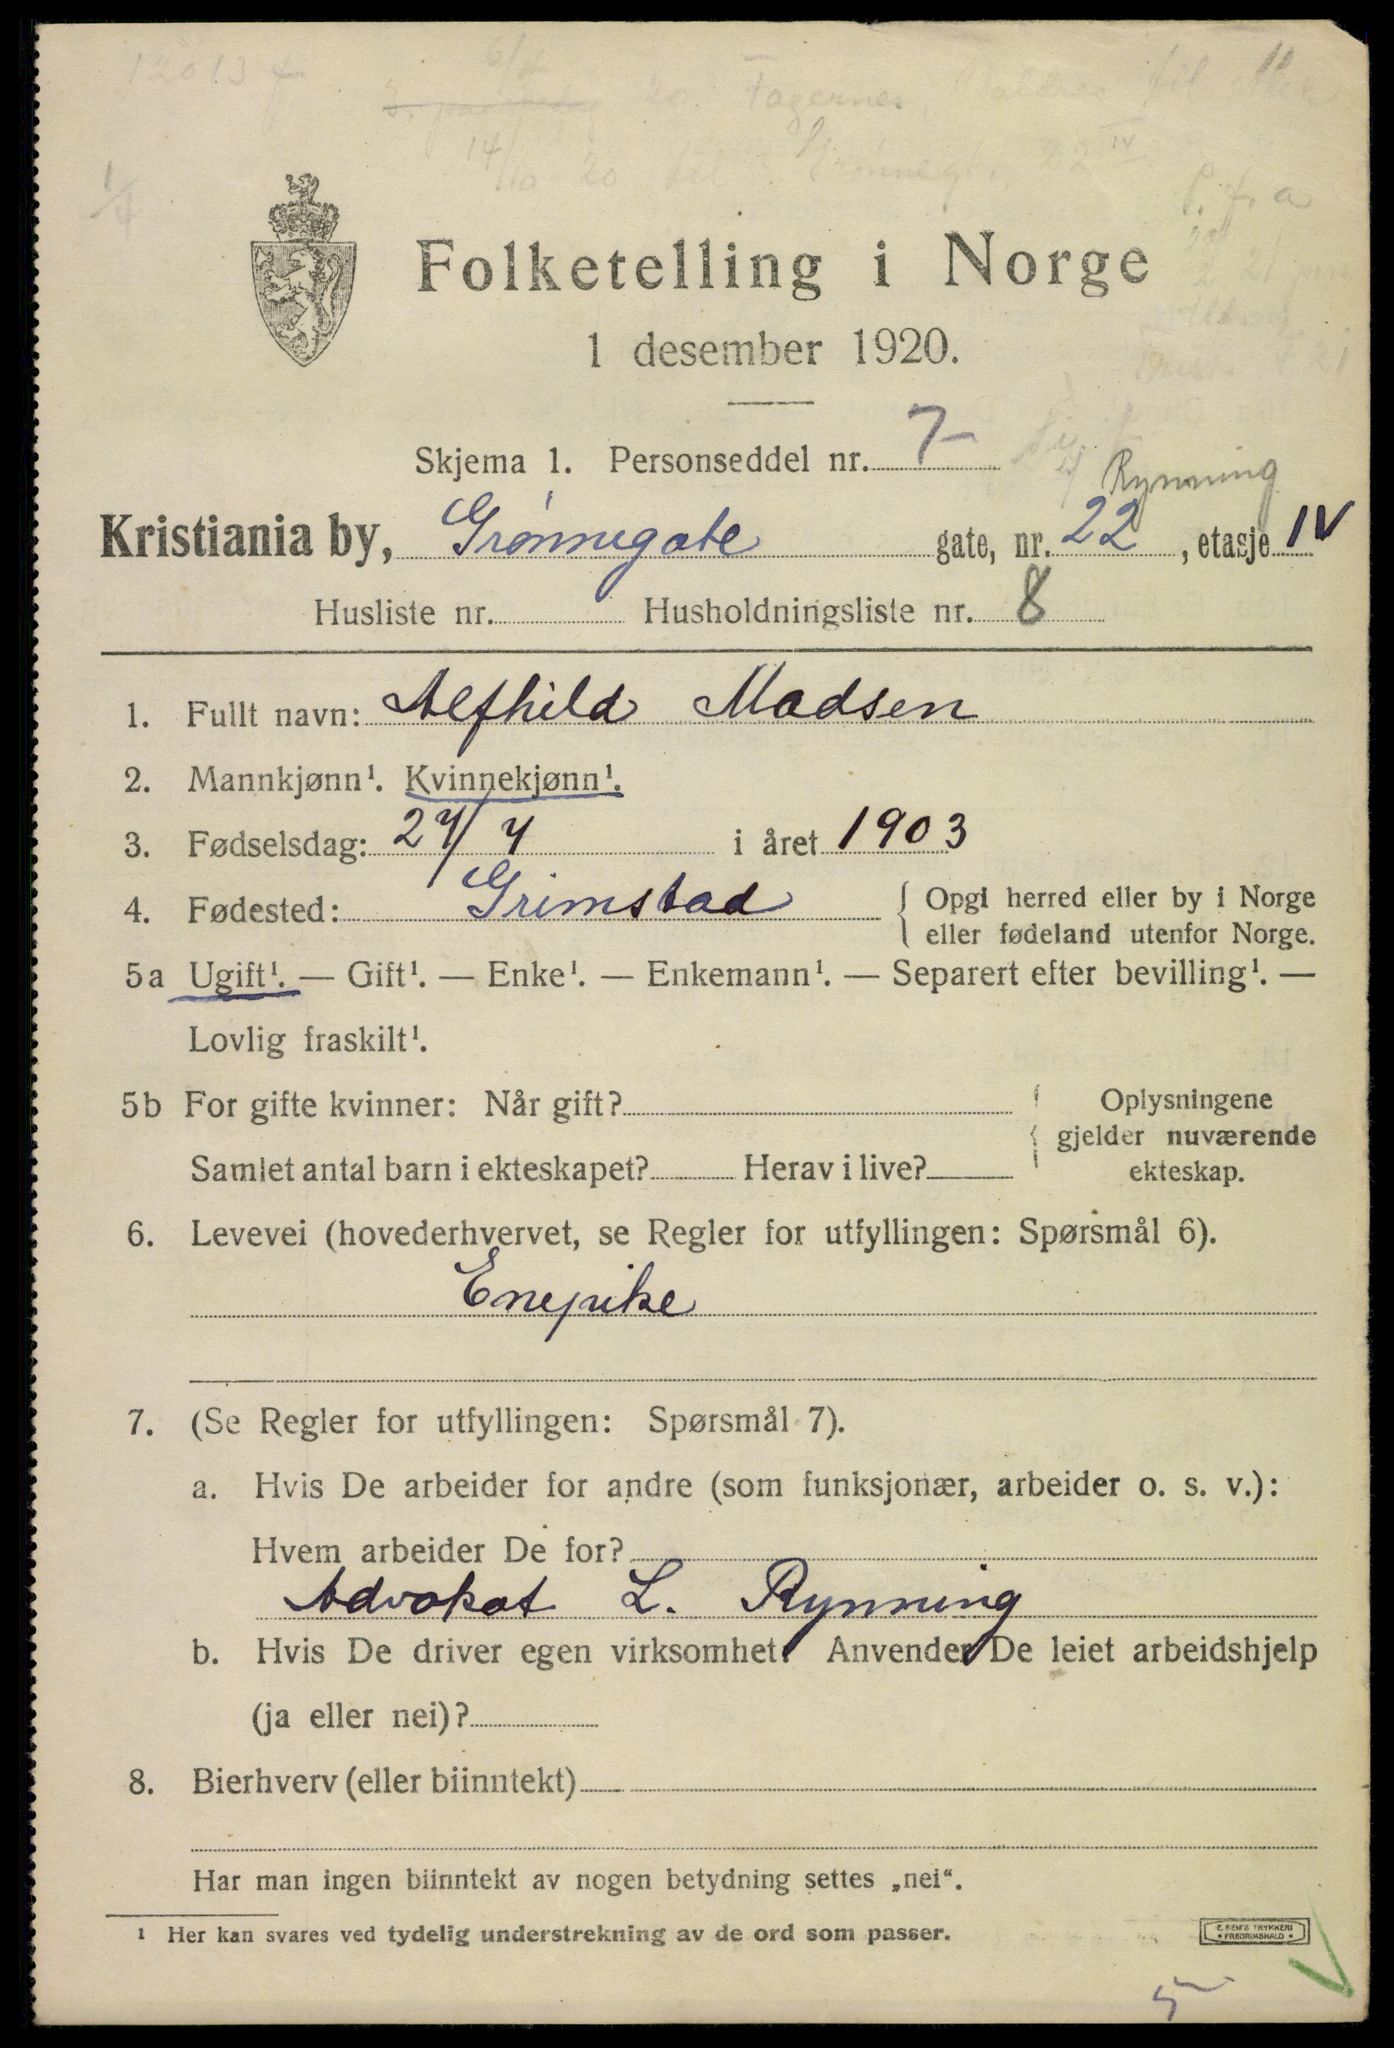 12013
6/4 20 Fagernes, Valdres til
14/10 20 til Grønnegt. 22 IV
1/4
P. fra
Folketelling i Norge
1 desember 1920.
Skjema 1. Personseddel nr. 7
Rynning
Kristiania by, Grønnegate gate, nr. 22, etasje IV
Husliste nr. Husholdningsliste nr. 8
1. Fullt navn: Alfhild Madsen
2. Mannkjønn¹. Kvinnekjønn¹.
3. Fødselsdag: 27/7 i året 1903
4. Fødested: Grimstad { Opgi herred eller by i Norge
eller fødeland utenfor Norge.
5a Ugift¹. — Gift¹. — Enke¹. — Enkemann¹. — Separert efter bevilling¹. —
Lovlig fraskilt¹.
5b For gifte kvinner: Når gift? { Oplysningene
gjelder nuværende
Samlet antal barn i ekteskapet? Herav i live? ekteskap.
6. Levevei (hovederhvervet, se Regler for utfyllingen: Spørsmål 6).
Enepike
7. (Se Regler for utfyllingen: Spørsmål 7).
a. Hvis De arbeider for andre (som funksjonær, arbeider o. s. v.):
Hvem arbeider De for?
Advokat L. Rynning
b. Hvis De driver egen virksomhet: Anvender De leiet arbeidshjelp
(ja eller nei)?
8. Bierhverv (eller biinntekt)
Har man ingen biinntekt av nogen betydning settes „nei“.
¹ Her kan svares ved tydelig understrekning av de ord som passer.
C. BEM'S TRYKKERI
* FREDRIKSHALD *
5